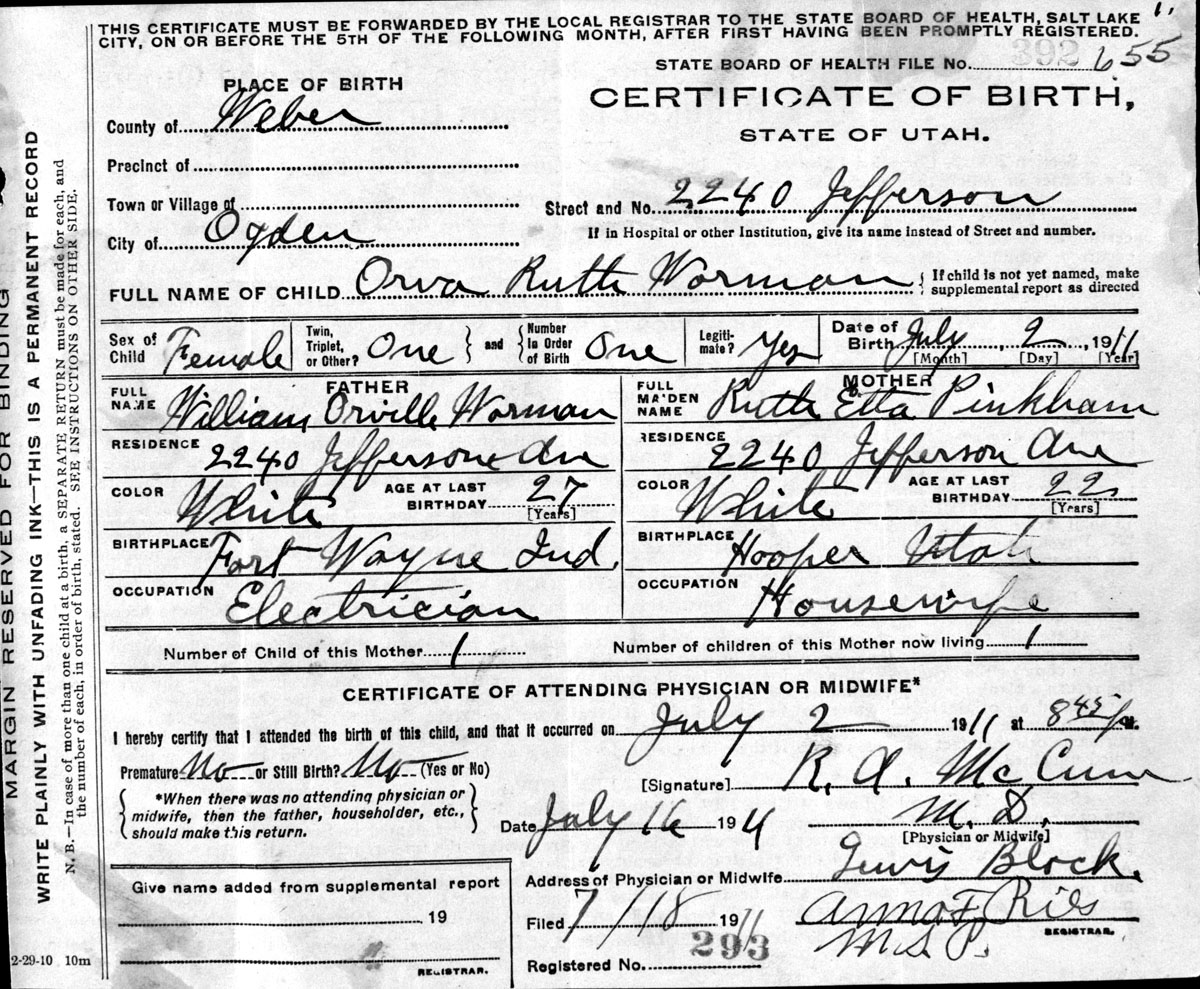 THIS CERTIFICATE MUST BE FORWARDED BY THE LOCAL REGISTRAR TO THE STATE BOARD OF HEALTH, SALT LAKE
CITY, ON OR BEFORE THE 5TH OF THE FOLLOWING MONTH, AFTER FIRST HAVING BEEN PROMPTLY REGISTERED.
392
STATE BOARD OF HEALTH FILE No. 655
PLACE OF BIRTH
CERTIFICATE OF BIRTH,
STATE OF UTAH.
County of Weber
Precinct of
Town or Village of
Street and No. 2240 Jefferson
City of Ogden
If in Hospital or other Institution, give its name instead of Street and number.
FULL NAME OF CHILD Orva Ruth Worman
{ If child is not yet named, make
supplemental report as directed
Sex of Child Female
Twin, Triplet, or Other? One } and { Number In Order of Birth One
Legitimate? Yes
Date of Birth July 2, 1911
[Month] [Day] [Year]
FATHER
FULL NAME William Orville Worman
RESIDENCE 2240 Jefferson Ave
COLOR White AGE AT LAST BIRTHDAY 27
[Years]
BIRTHPLACE Fort Wayne Ind.
OCCUPATION Electrician
MOTHER
FULL MAIDEN NAME Ruth Etta Pinkham
RESIDENCE 2240 Jefferson Ave
COLOR White AGE AT LAST BIRTHDAY 22
[Years]
BIRTHPLACE Hooper Utah
OCCUPATION Housewife
Number of Child of this Mother 1 Number of children of this Mother now living 1
CERTIFICATE OF ATTENDING PHYSICIAN OR MIDWIFE*
I hereby certify that I attended the birth of this child, and that it occurred on July 2 1911 at 8 45 P M.
Premature No or Still Birth? No (Yes or No)
[Signature] R. A. McCune
{ *When there was no attending physician or
midwife, then the father, householder, etc.,
should make this return. }
Date July 16 1911 M. D.
[Physician or Midwife]
Address of Physician or Midwife Lewis Block.
Give name added from supplemental report
19
REGISTRAR.
Filed 7/18 1911 Anna F. Ries
REGISTRAR.
293
Registered No.
MARGIN RESERVED FOR BINDING
WRITE PLAINLY WITH UNFADING INK—THIS IS A PERMANENT RECORD
N. B.—In case of more than one child at a birth, a SEPARATE RETURN must be made for each, and
the number of each, in order of birth, stated. SEE INSTRUCTIONS ON OTHER SIDE.
2-29-10 10m